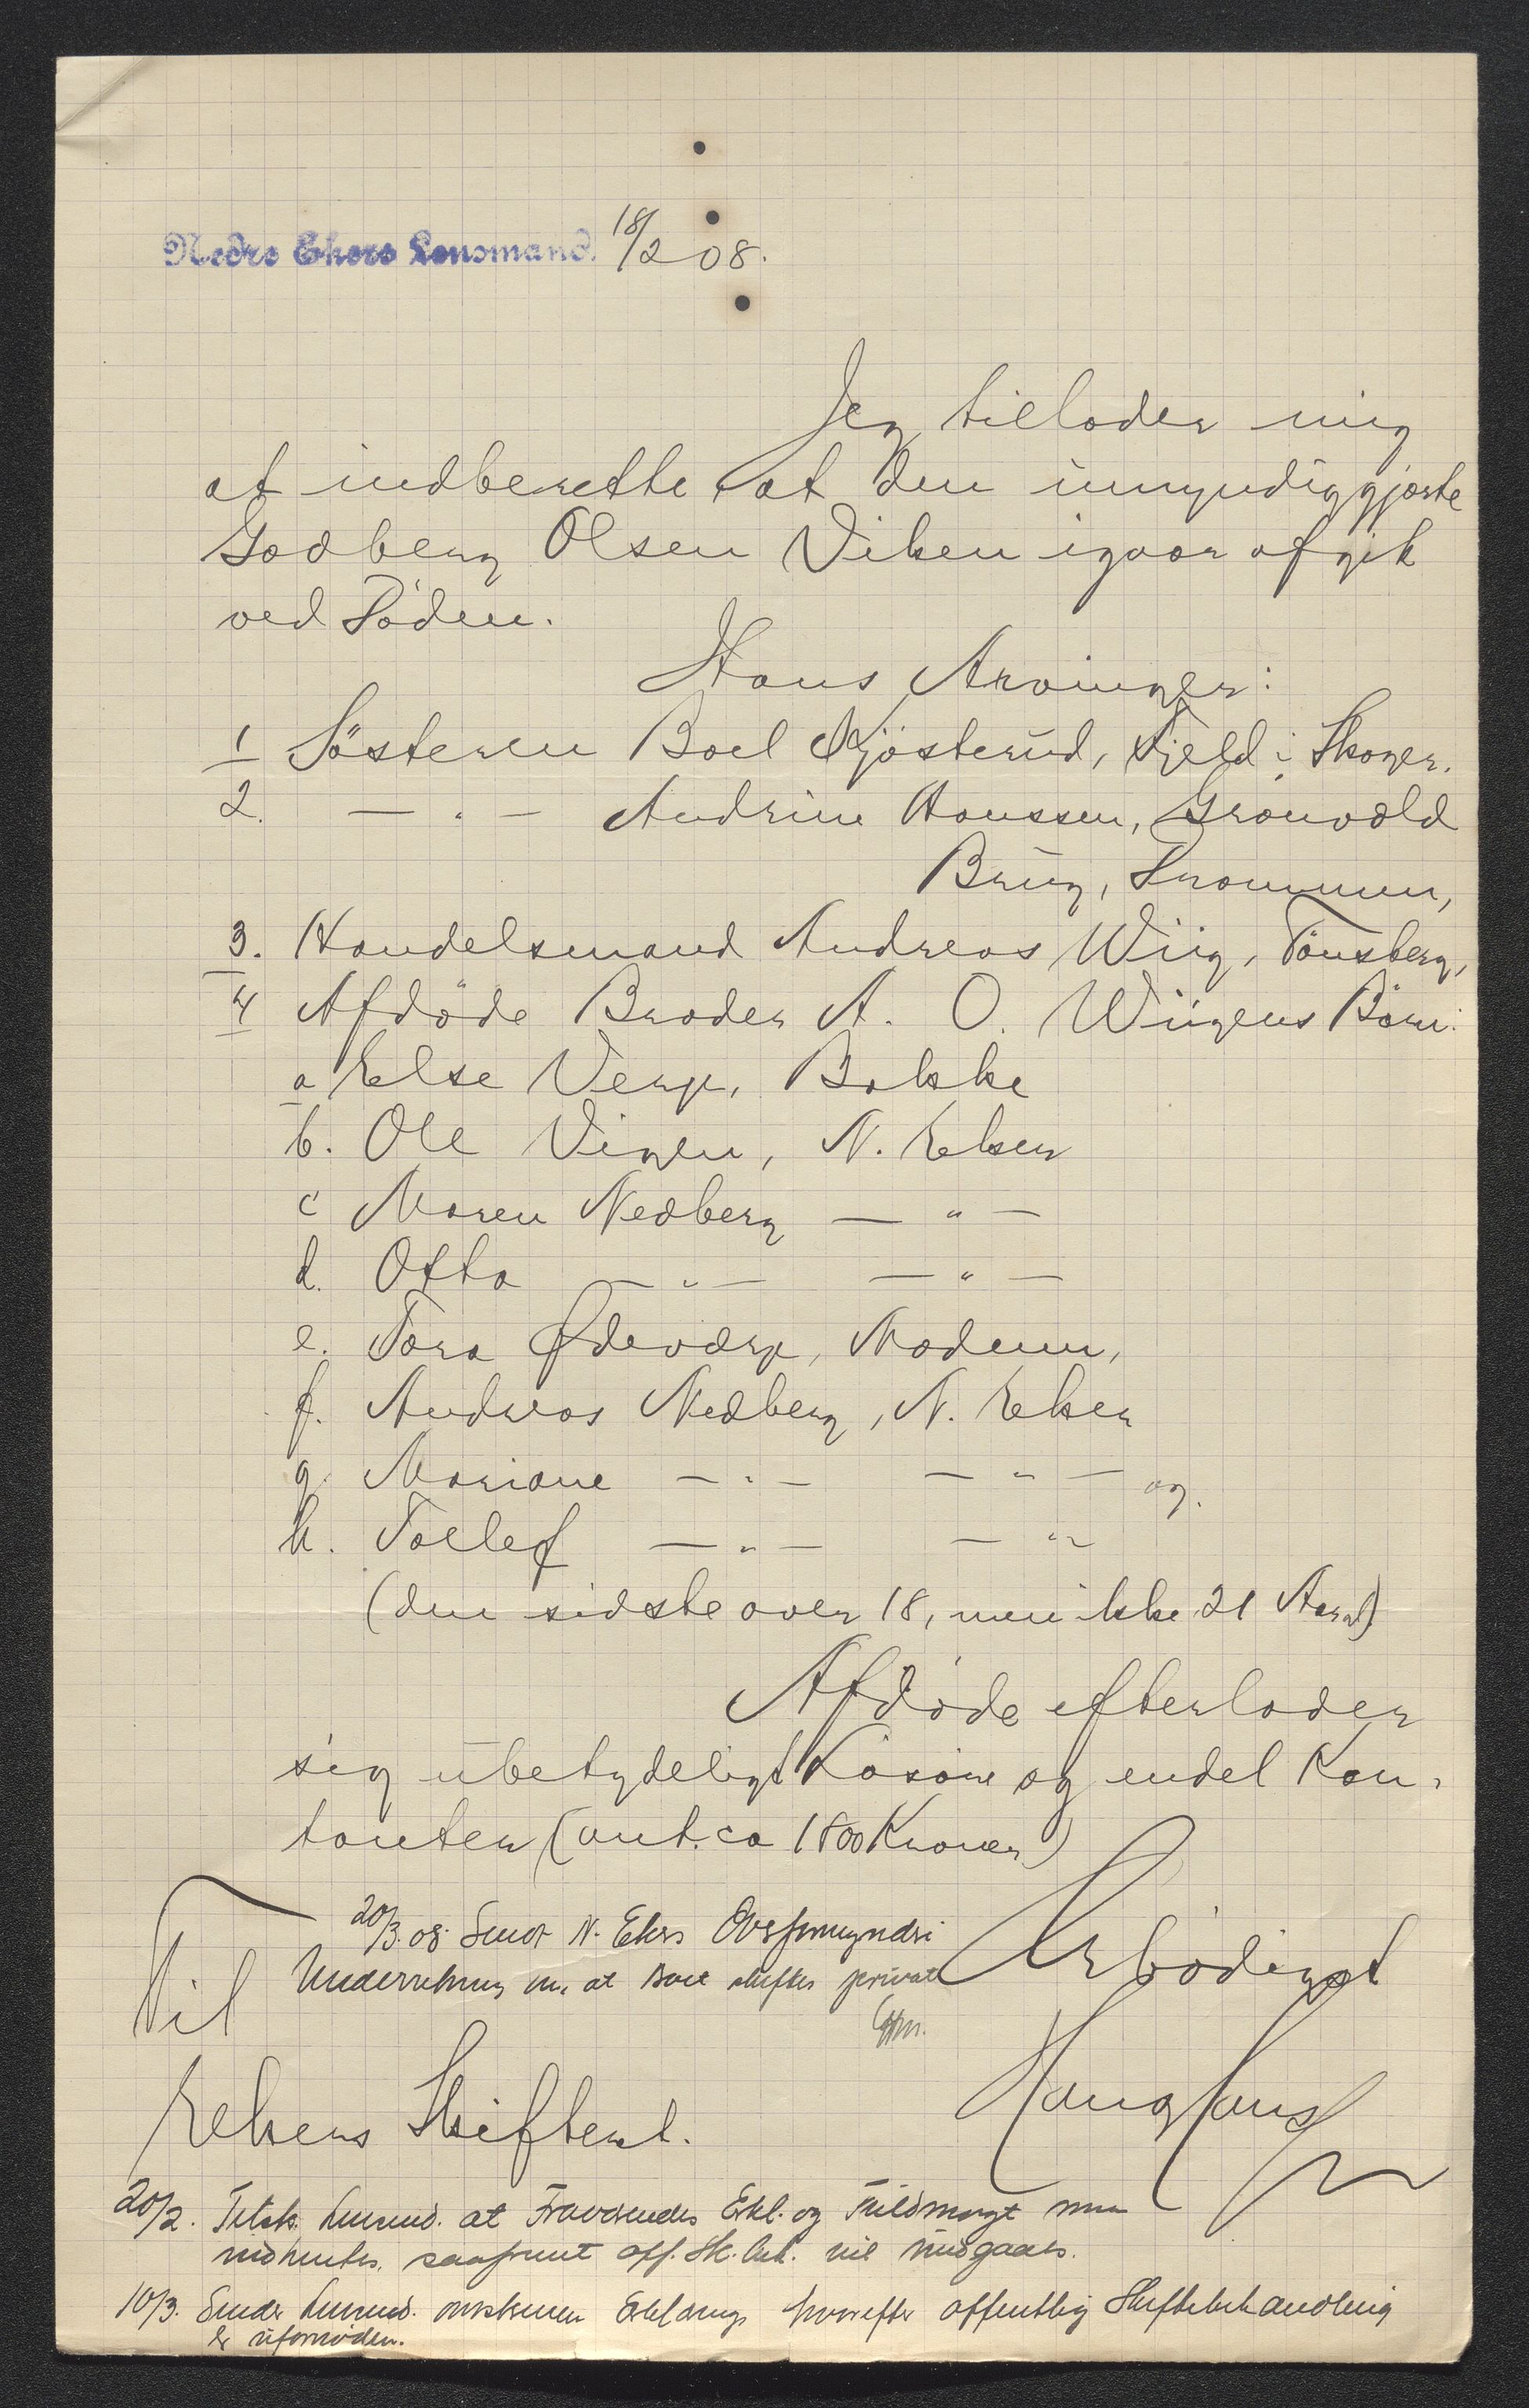 Nedre Ekers Lensmand. 18/2 08.
Jeg tillader mig
at indberette at den umyndiggjorte
Godberg Olsen Viken igaar afgik
ved Döden.
Hans Arvinger:
1 Sösteren Boel Kjösterud, Fjeld i Skoger.
2. — " — Andrine Hanssen, Grönvold
Brug, Drammen,
3. Handelsmand Andreas Wiig, Tönsberg,
4 Afdöde Broder A. O. Wiigens Börn:
a Else Verp, Bakke
b. Ole Vigen, N. Eker
c Maren Nedberg — " —
d. Otto — " — — " —
e. Tora Ødevarp, Modum,
f. Andreas Nedberg, N. Eker
g. Mariane — " — — " — og.
h. Tollef — " — — " —
(den sidste over 18, men ikke 21 Aar)
Afdöde efterlader
sig ubetydeligt Lösöre og endel Kon-
tanter (ant. ca 1800 Kroner)
Ærbödigst
20/3.08. N. Ekers Overformynderi
Underretning om at Boet skiftes privat
Til
Ekers Skifteret.
20/2. Lensmd. at Fraværendes Erkl. og Fuldmagt maa
indhentes, saafremt off. Sk. beh. vil undgaaes.
10/3. Sender Lensmd. Erklæring hvorefter offentlig Skiftebehandling
er ufornöden.